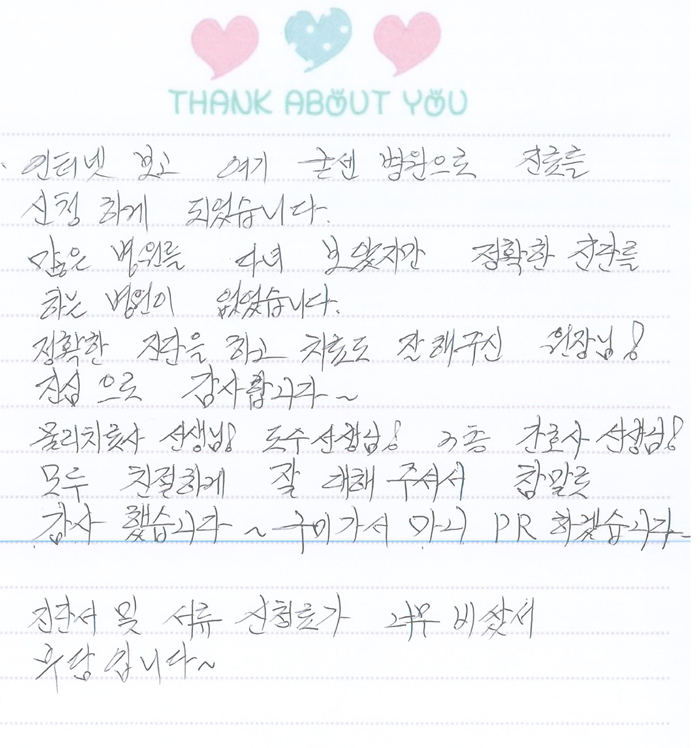 THANK ABOUT YOU
인터넷 보고 여기 굳센 병원으로 진료를
신청 하게 되었습니다.
많은 병원를 다녀 보았지만 정확한 진단를
하는 병원이 없었습니다.
정확한 진단을 하고 치료도 잘해주신 원장님!
진심으로 감사합니다~
물리치료사 선생님! 도수선생님! 3층 간호사 선생님!
모두 친절하게 잘 대해 주셔서 참말로
감사 했습니다 ~ 구미가서 마니 PR 하겠습니다-
진단서 및 서류 신청료가 너무 비싸서
부담입니다~